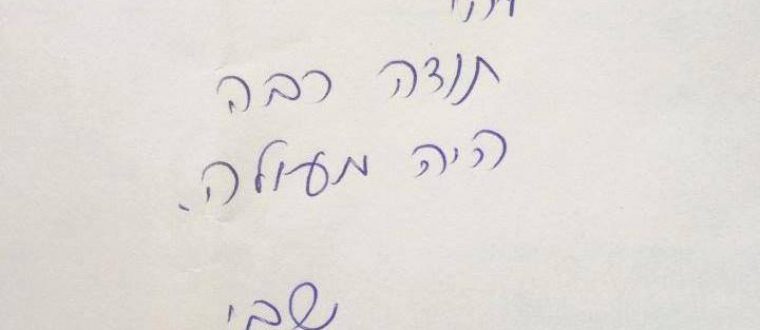 תודה רבה
היה מעולה.
שבי